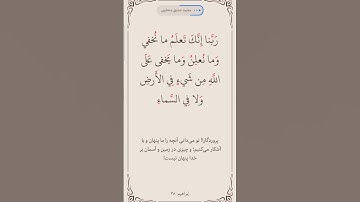 رَبَّنا إِنَّكَ تَعلَمُ ما نُخفي
وَما نُعلِنُ وَما يَخفى عَلَى
اللَّهِ مِن شَيءٍ فِي الأَرضِ
وَلا فِي السَّماءِ
پروردگارا! تو می‌دانی آنچه را ما پنهان و یا
آشکار می‌کنیم؛ و چیزی در زمین و آسمان بر
خدا پنهان نیست!
إبراهيم ٣٨